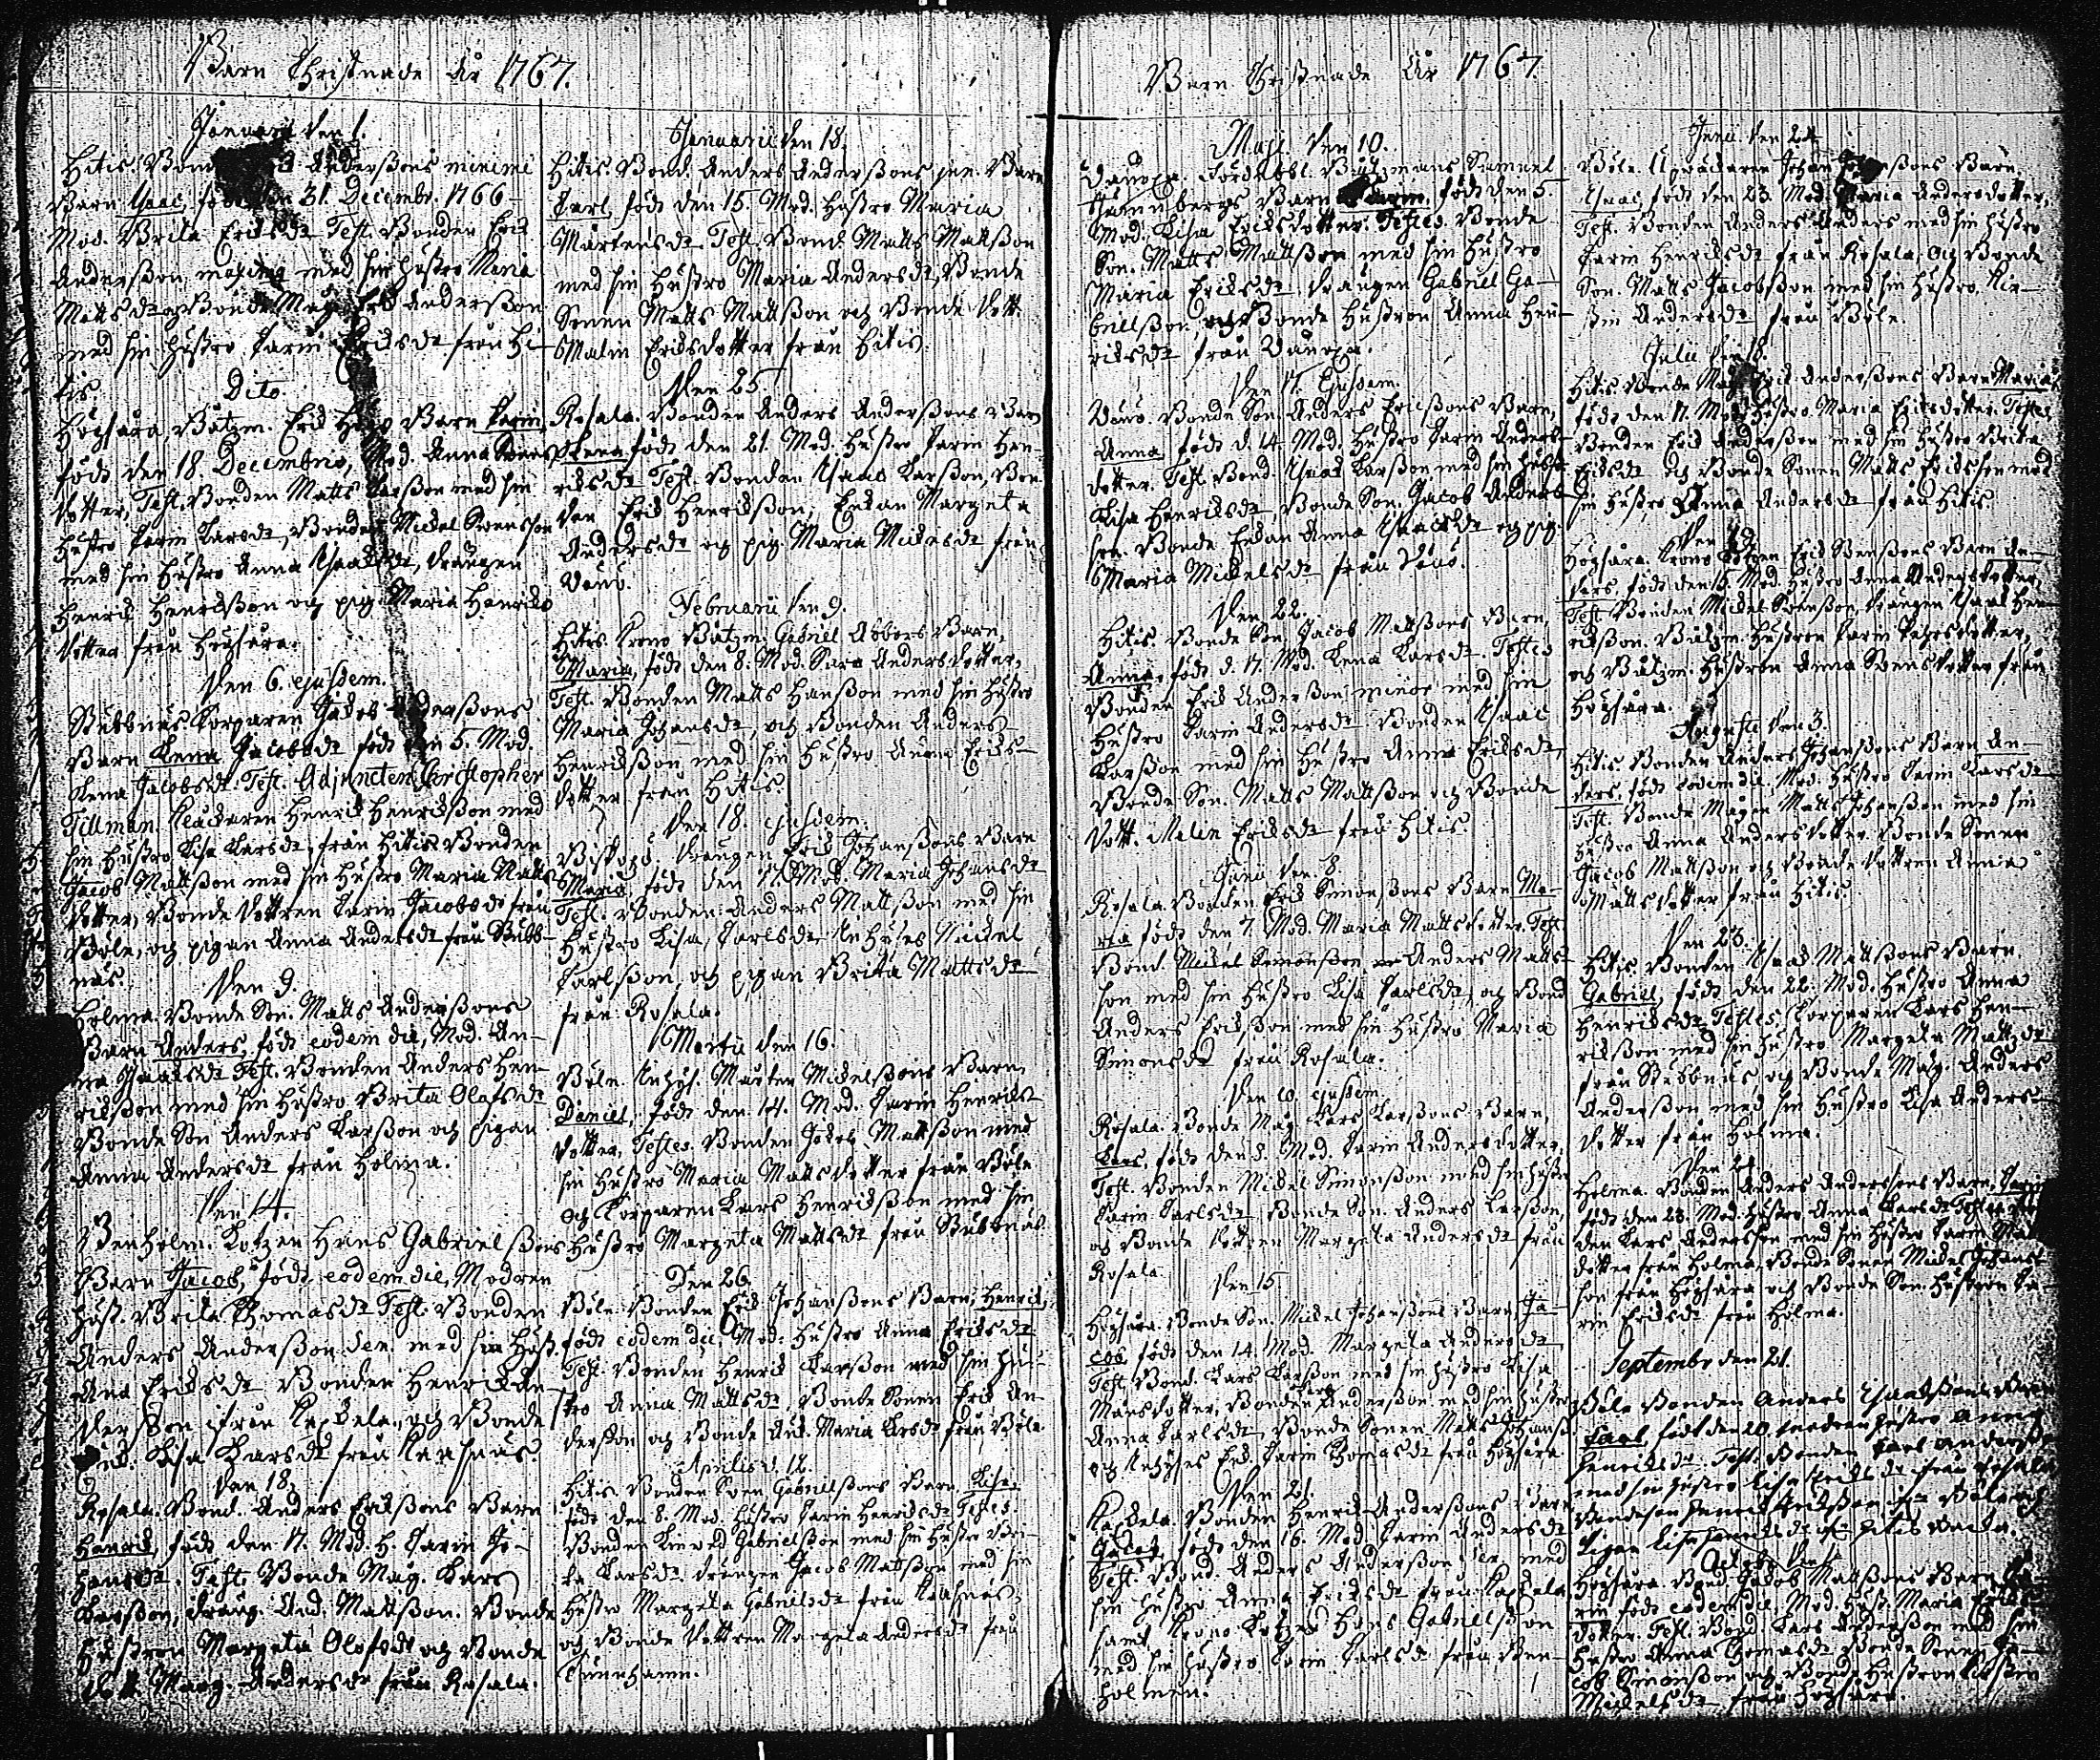 Barn Christnade År 1767.
Januarii den 1.
Hitis. Bond Anderßons minimi
Barn Isaac, född den 31. Decembr. 1766
Mod. Brita Ericksdr Test. Bonden Erick
Anderßon med sin Hustro Maria
Mattsdr och Bonde Måg Erick Anderßon
med sin Hustro Karin Ericksdr från Hi-
tis.
Dito.
Högsåra, Båtzm. Erick Barn Karin
född den 18 Decembris, Mod. Anna Svens
dotter, Test. Bonden Matts Larßon med sin
Hustro Karin Larsdr, Bonden Mickel Svensson
med sin Hustro Anna Isaacsdr, Drängen
Henrick Henrickßon och pig. Maria Henricks
dotter från Högsåra.
Den 6. ejusdem.
Stubbnäs. Torparen Jacob
Barn Lena Jacobsdr född den 5. Mod.
Lena Jacobsdr. Test. Adjuncten Christopher
Tillman. Klåckaren Henrick Henrickßon med
sin Hustro Lisa Larsdr från Hitis Bonden
Jacob Mattßon med sin Hustro Maria Matts
dotter, Bonde Dottren Karin Jacobsdr från
Böle, och pigan Anna Andersdr från Stubb-
näs.
Den 9.
Holma. Bonde Son. Matts Anderßons
Barn Anders, född eodem die, Mod. An-
na Isaacsdr Test. Bonden Anders Hen-
rickßon med sin Hustro Brita Olofsdr
Bonde Son Anders Larßon och Pigan
Anna Andersdr från Holma.
Den 14.
Benholm. Kotzen Hans Gabrielßons
Barn Jacob, född eodem die, Modren
Hust. Brita Thomasdr Test. Bonden
Anders Anderßon Sen. med sin Hust.
Ana Ericksdr Bonden Henrick An-
derßon ifrån Kaxskela, och Bonde
Lisa Larsdr från
Den 18.
Rosala. Bond. Anders Erickßons Barn
Henrick, född den 17. Mod. H. Karin Jo-
hansdr. Test. Bonde Måg. Lars
Larßon, Dräng. And. Mattßon. Bonde
Hustron Margeta Olofsdr och Bonde
Dott. Marg. Andersdr från Rosala.
Januarii den 18.
Hitis. Bond. Anders Anderßons jun. Barn
Carl, född den 15. Mod. Hustro Maria
Mårtensdr. Test. Bond. Matts Mattßon
med sin Hustro Maria Andersdr, Bonde
Sonen Matts Mattßon och Bonde Dott.
Malin Ericksdotter från Hitis.
Den 25
Rosala. Bonden Anders Anderßons Barn
Lena född den 21. Mod. Hustro Karin Hen-
ricksdr Test. Bonden Isaac Larßon, Bon-
den Erick Henrickßon, Enkan Margeta
Andersdr och pig. Maria Mickelsdr från
Vänö.
Februarii den 9.
Hitis Krono Båtzm. Gabriel Abbors Barn,
Maria, född den 8. Mod. Sara Andersdotter,
Test. Bonden Matts Hanßon med sin Hustro
Maria Johansdr, och Bonden Anders
Henrickßon med sin Hustro Anna Ericks-
dotter från Hitis.
Den 18. ejusdem.
Biskopsö. Drängen Erick Johanßons Barn
Maria, född den 17. Mod. Maria Johansdr
Test. Bonden Anders Mattßon med sin
Hustro Lisa, Carlsdr Inhyses Mickel
Carlßon, och pigan Brita Mattsdr
från Rosala.
Martii den 16.
Böle. Inhys. Mårten Mickelßons Barn
Daniel, född den 14. Mod. Karin Henricks-
dotter, Testes. Bonden Jacob Mattßon med
sin Hustro Maria Mattsdotter från Böle
och Torparen Lars Henrickßon med sin
Hustro Margeta Mattsdr från Stubbnäs.
Den 26
Böle. Bonden Erick Johanßons Barn, Henrick,
född eodem die, Mod. Hustro Anna Ericksdr
Test. Bonden Henrick Larßon med sin Hu-
stro Anna Mattsdr, Bonde Sonen Erick An-
derßon och Bonde Maria Larsdr från Böle.
Aprilis d. 12.
Hitis Bonden Sven Gabrielßons Barn Lisa,
född den 8. Mod. Hustro Karin Henricksdr Testes
Bonden Gabrielßon med sin Hustro Bri-
ta Larsdr. Drängen Jacob Mattßon med sin
Hustro Margeta Gabrielsdr från
och Bonde Dottren Margeta Andersdr från
Barn Christnade År 1767.
Maji den 10.
Vänoxa. Båtzmans Samuel
Barn Karin, född den 5
Mod. Lisa Ericksdotter. Testes. Bonde
Son. Matts Mattßon med sin Hustro
Maria Ericksdr, Drängen Gabriel Ga-
brielßon och Bonde Hustron Anna Hen-
ricksdr från Vänoxa.
Den 17. Ejusdem.
Vänö. Bonde Son. Anders Erickßons Barn,
Anna, född d. 14. Mod. Hustro Karin Anders-
dotter. Test. Bond. Isaac Larßon med sin Hust.
Lisa Henricksdr, Bonde Son. Jacob Anders-
son. Bonde Enkan Anna Isaacsdr och pig.
Maria Mickelsdr från Vänö.
Den 22.
Hitis. Bonde Son Jacob Mattßons Barn,
Anna, född d. 17. Mod. Lena Larsdr. Testes
Bonden Erick Anderßon minor med sin
Hustro Karin Andersdr Bonden Isaac
Larßon med sin Hustro Anna Ericksdr,
Bonde Son. Matts Mattßon och Bonde
Dott. Malin Ericksdr från Hitis.
Junii den 8.
Rosala. Bonden Erick Simonßons Barn Ma-
ria född den 7. Mod. Maria Mattsdotter. Test.
Bond. Mickel Simonßon Anders Matts-
son med sin Hustro Lisa Carlsdr, och Bond
Anders Erickßon med sin Hustro Maria
Simonsdr från Rosala.
Den 10 ejusdem
Rosala. Bonde Måg Lars Larßons Barn,
Lars, född den 8. Mod. Karin Andersdotter,
Test. Bonden Mickel Simonßon med sin Hustro
Karin Carlsdr Bonde Son. Anders Larßon,
och Bonde Dottren Margeta Andersdr från
Rosala.
Den 15
Högsåra. Bonde Son. Mickel Johanßons Barn, Ja-
cob född den 14. Mod. Margeta Andersdr
Test. Bond. Lars Larßon med sin Hustro Lisa
Månsdotter, Bonden Anderßon med sin Hustro
Anna Carlsdr, Bonde Sonen Matts Johanß.
och Inhyses Enk. Karin Thomasdr från Högsåra.
Den 21.
Kaxskela. Bonden Henrick Anderßons Barn
Jacob, född den 16. Mod. Karin Andersdr
Test. Bond. Anders Anderßon Sen. med
sin Hustro Anna Ericksdr från Kaxskela
samt Krono Kotzen Hans Gabrielßon
med sin Hustro Karin Carlsdr från Ben-
holmen.
Junii den 24
Böle. Johan Barn,
Isaac, född den 23. Mod. Maria Andersdotter,
Test. Bonden Anders Anders med sin Hustro
Karin Henricksdr från Rosala och Bonde
Son. Matts Jacobßon med sin Hustro, Kir-
stin Andersdr från Böle.
Julii den 18.
Hitis. Bonde Måg Erick Anderßons Barn Maria,
född den 17. Mod. Hustro Maria Ericksdotter. Testes
Bonden Erick Anderßon med sin Hustro Brita
Ericksdr och Bonde Sonen Matts Erickßon med
sin Hustro Anna Andersdr från Hitis.
Högsåra. Krono Erick Svenßons Barn An-
ders, född den Mod. Hustro Anna Andersdotter
Test. Bonden Mickel Svenßon, Drängen Isaac Hen-
rickßon. Båtzm. Hustron Karin
och Båtzm. Hustron Anna Svensdotter från
Högsåra.
Augusti den 3.
Hitis. Bonden Anders Johanßons Barn An-
ders, född eodem die, Mod. Hustro Karin Larsdr
Test. Bonde Mågen Matts Johanßon med sin
Hustro Anna Andersdotter. Bonde Sonen
Jacob Mattßon och Bonde Dottren Anna
Mattsdotter från Hitis.
Den 23.
Hitis. Bonden Isaac Mattßons Barn
Gabriel, född den 22. Mod. Hustro Anna
Henricksdr Testes. Torparen Lars Hen-
rickßon med sin Hustro Margeta Mattsdr
från Stubbnäs och Bonde Måg. Anders
Anderßon med sin Hustro Lisa Anders-
dotter från Holma.
Holma. Bonden Anders Andersßons Barn,
född den 23. Mod. Hustro Anna Larsdr Testes
den Lars Anderßon med sin Hustro Karin
dotter från Holma, Bonde Sonen Mickel Johans-
son från Högsåra och Bonde Son. Hustron Ka-
rin Ericksdr från Holma.
Septembr den 21.
Böle Bonden Anders Isaacßons Barn
Carl, född den 20, modren Hustro Anna
Henricksdr Test. Bonden Carl Anderßon
med sin Hustro Lisa Ericksdr från Rosala
Bondeson Henrick Erickßon från Böle och
Pigan Lisa Henricksdr från Hitis
Octobr
Högsåra. Bond. Jacob Mattßons Barn Ka-
rin född eodem die, Mod. Hust. Maria Ericks-
dotter. Test. Bond. Lars Anderßon med sin
Hustro Anna Thomasdr Bonde Sonen Ja-
cob Simonßon och Bonde Hustron Kirstin
Mickelsdr från Högsåra.